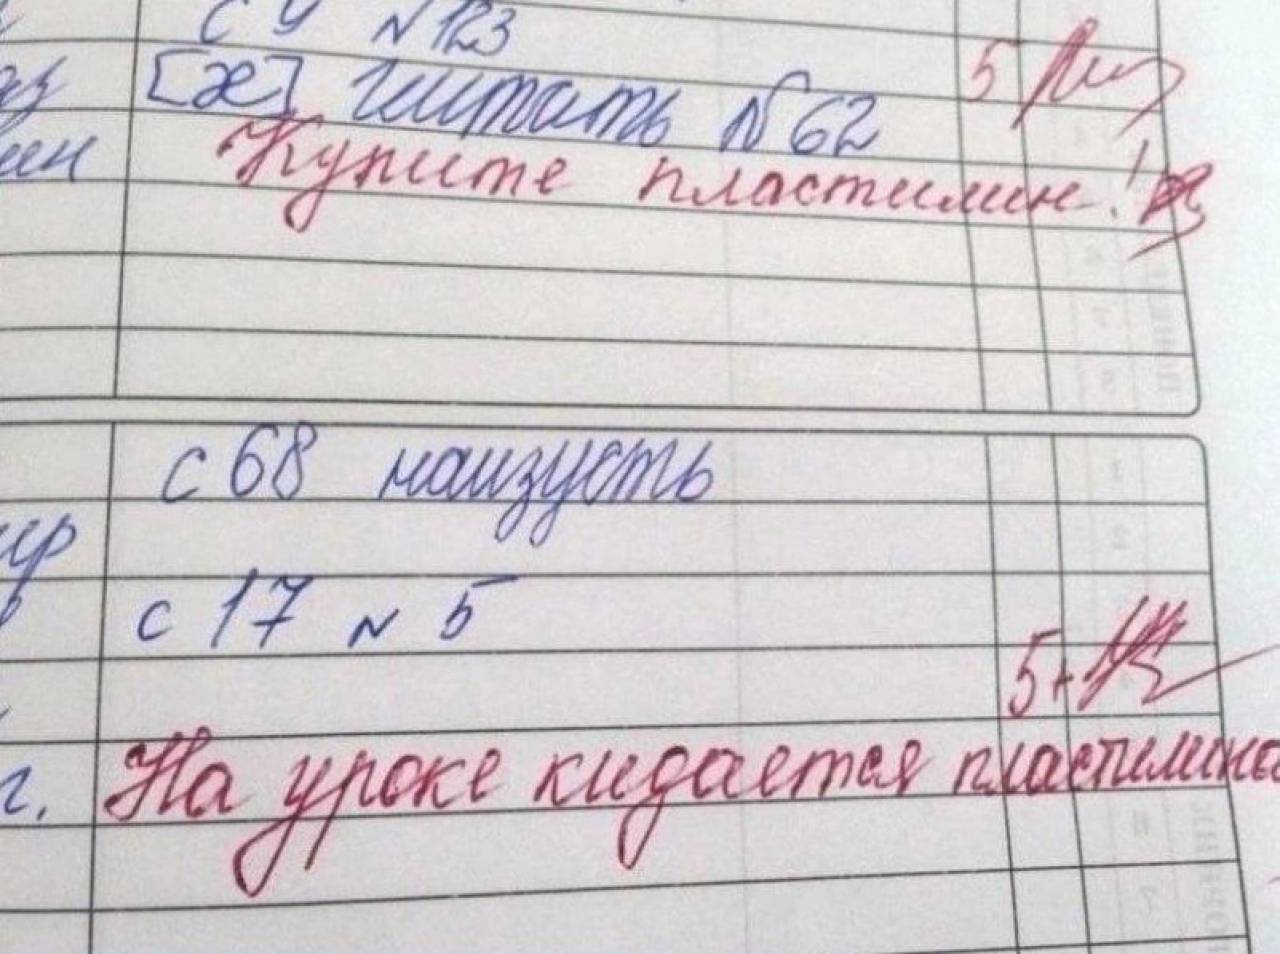 с 4 № 123
[æ] читать № 62 5
Купите пластилин!
с 68 наизусть
с 17 № 5
5+
г. На уроке кидается пластилино